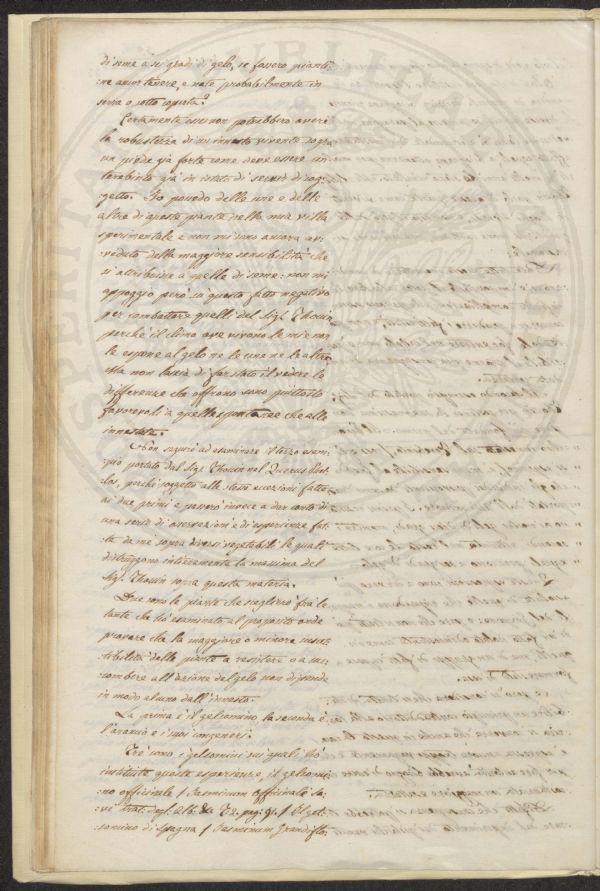 di seme a sei gradi di gelo, se fossero pianti-
ne annotinere, e nate probabilmente in
serra o sotto coperta?
Certamente esse non potrebbero avere
la robustezza di un innesto vivente sopra
un piede già forte come deve essere un
terebinto già in istato di servir di sog-
getto. Io posiedo delle une e delle
altre di queste piante nella mia villa
sperimentale e non mi sono ancora av-
veduto della maggiore sensibilità che
si attribuisce a quelle di seme: non mi
appoggio però su questo fatto negativo
per combattere quelli del Sigr. Thouin
perchè il clima ove vivono le mie non
le espone al gelo ne le une ne le altre
Ma non lascia di far stato il vedere le
differenze che offrono sono piuttosto
favorevoli a quelle spontanee che alle
innestate.
Non seguirò ad esaminare il terzo esem-
pio portato dal Sigr. Thouin nel Quercus
perchè soggetto alle stesse eccezioni fatte
ai due primi e passerò invece a dar conto di
una serie di osservazioni e di esperienze fat-
te da me sopra diversi vegetabili le quali
distruggono intieramente la massima del
Sigr. Thouin sovra questa materia.
Due sono le piante che sceglierò fra le
tante che ho esaminate al proposito onde
provare che la maggiore o minore susce-
tibilità delle piante a resistere o a suc-
combere all'azione del gelo non dipende
in modo alcuno dall'innesto.
La prima è il gelsomino, la seconda è
l'arancio e i suoi congeneri.
Tre sono i gelsomini sui quali ho
instituite queste esperienze, il gelsomi-
no officinale / Jasminum officinale Sa-
vi Trat. degl. Alb. Ed. 2a. pag. 91. / Il gel-
somino di Spagna / Jasminum Grandiflo-